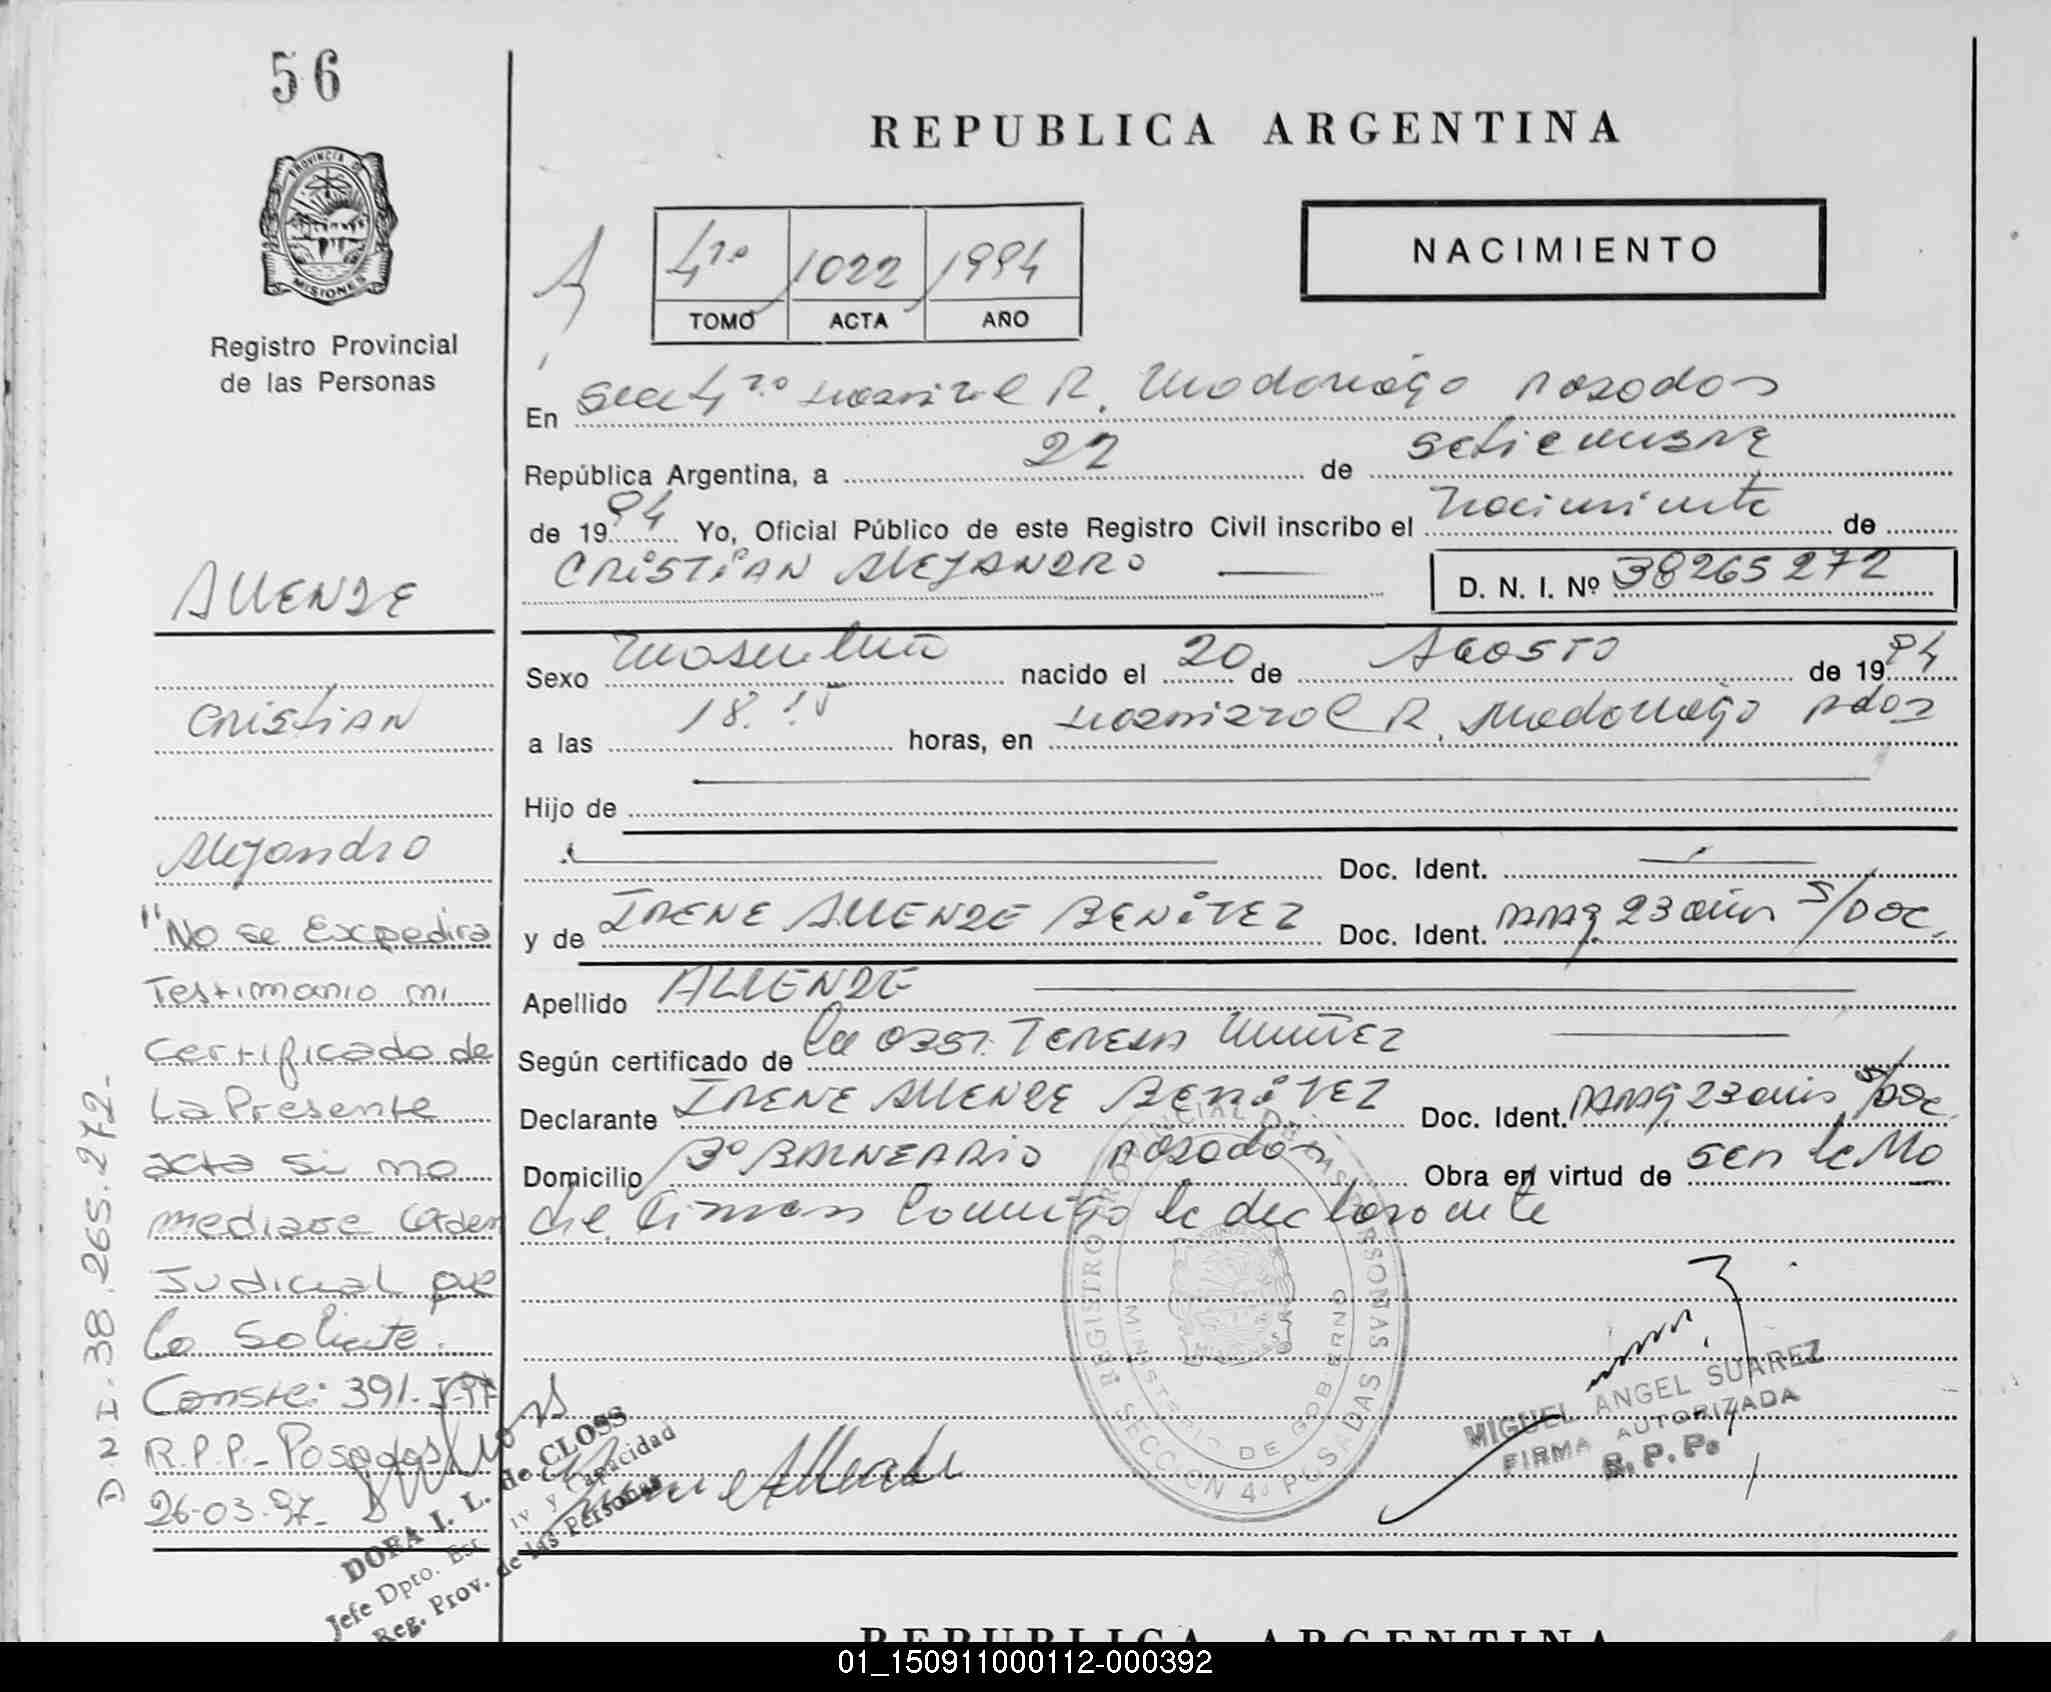 56
REPUBLICA ARGENTINA
PROVINCIA D MISIONES
Registro Provincial
de las Personas
4to 1022 1994
TOMO ACTA AÑO
NACIMIENTO
En Secc 4ta Hospital R. Madariaga Posadas
República Argentina, a 22 de setiembre
de 1994 Yo, Oficial Público de este Registro Civil inscribo el nacimiento de
CRISTIAN ALEJANDRO D. N. I. Nº 38265272
Sexo Masculino nacido el 20 de AGOSTO de 1994
a las 18.15 horas, en Hospital R. Madariaga Pdas
Hijo de
Doc. Ident.
y de IRENE ALLENDE BENÍTEZ Doc. Ident. 23 años S/Doc.
Apellido ALLENDE
Según certificado de la Obst. TERESA MUÑEZ
Declarante IRENE ALLENDE BENÍTEZ Doc. Ident. 23 años S/Doc.
Domicilio Bº BALNEARIO Posadas Obra en virtud de
la declarante
ALLENDE
Cristian
Alejandro
"No se Expedira
Testimonio ni
Certificado de
La Presente
acta si no
mediare Orden
Judicial que
lo Solicite.
Conste: 391.
R.P.P.- Posadas
26-03-97-
D.N.I. 38.265.272-
DORA I. L. de CLOSS
Jefe Dpto. Est. Civ y Capacidad
Reg. Prov. de las Personas
REGISTRO PROVINCIAL DE LAS PERSONAS
MINISTERIO DE GOBIERNO
SECCION 4a POSADAS
MISIONES
Irene Allende
MIGUEL ANGEL SUAREZ
FIRMA AUTORIZADA
R.P.P.
REPUBLICA ARGENTINA
01_150911000112-000392